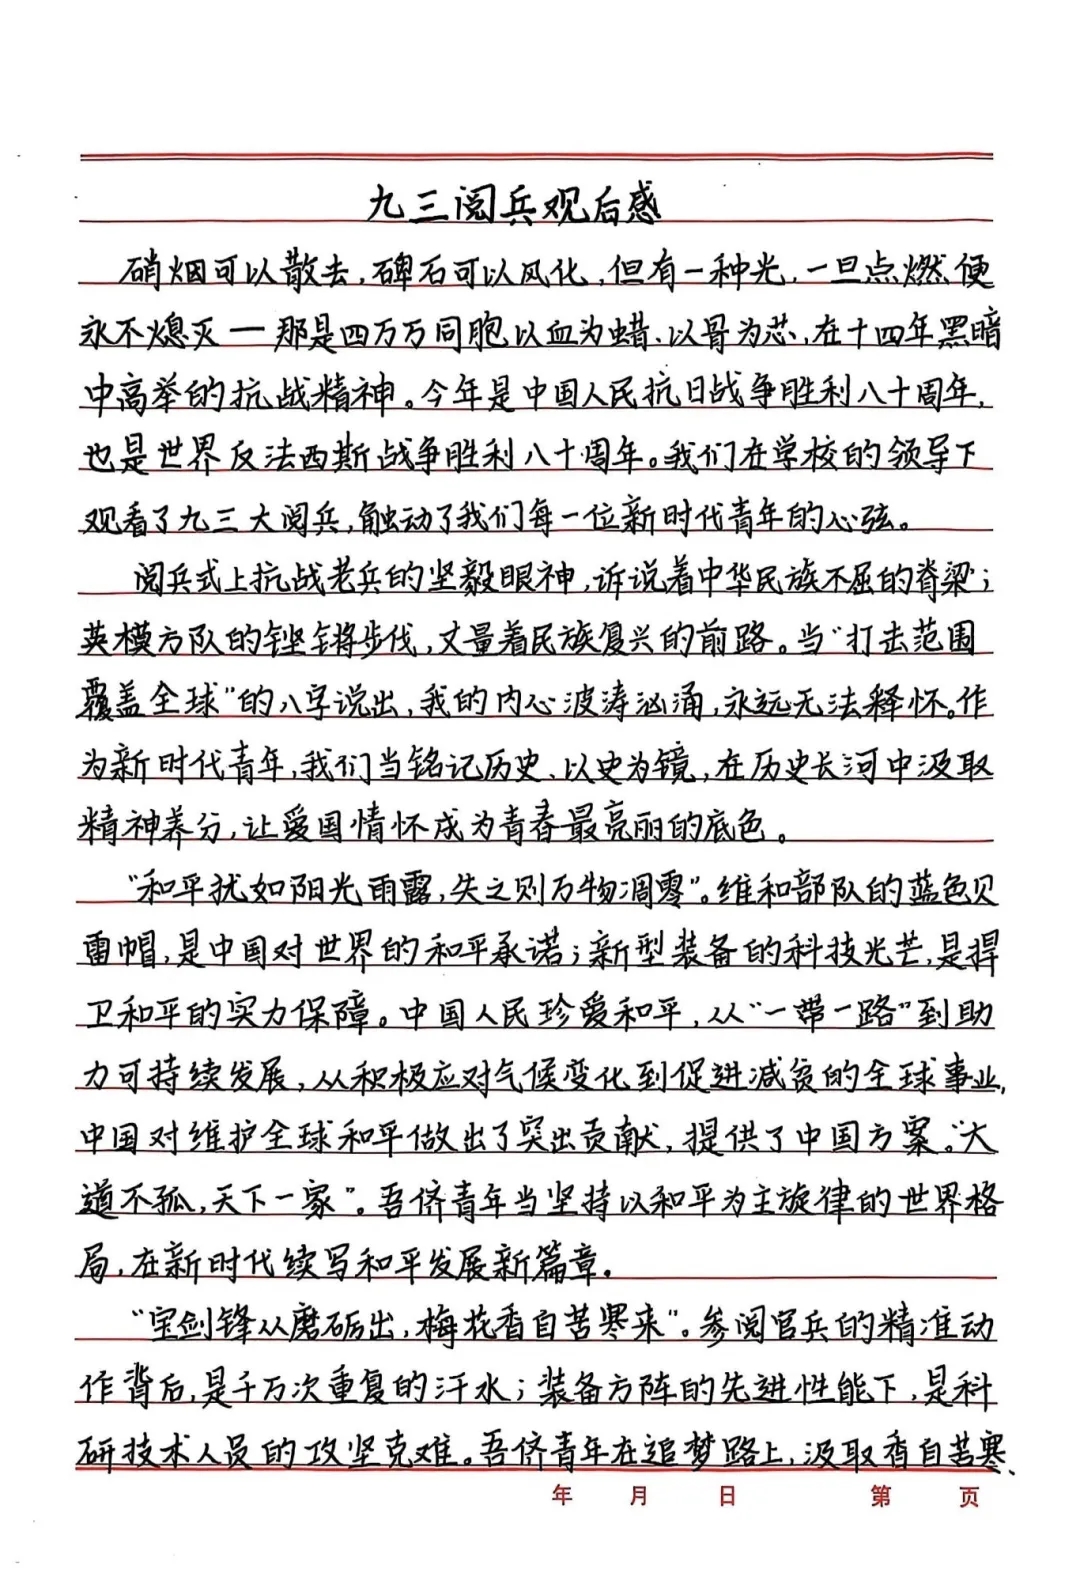 九三阅兵观后感
硝烟可以散去,碑石可以风化,但有一种光,一旦点燃便
永不熄灭—那是四万万同胞以血为蜡、以骨为芯,在十四年黑暗
中高举的抗战精神。今年是中国人民抗日战争胜利八十周年,
也是世界反法西斯战争胜利八十周年。我们在学校的领导下
观看了九三大阅兵,触动了我们每一位新时代青年的心弦。
阅兵式上抗战老兵的坚毅眼神,诉说着中华民族不屈的脊梁;
英模方队的铿锵步伐,丈量着民族复兴的前路。当“打击范围
覆盖全球”的八字说出,我的内心波涛汹涌,永远无法释怀。作
为新时代青年,我们当铭记历史、以史为镜,在历史长河中汲取
精神养分,让爱国情怀成为青春最亮丽的底色。
“和平犹如阳光雨露,失之则万物凋零”。维和部队的蓝色贝
雷帽,是中国对世界的和平承诺;新型装备的科技光芒,是捍
卫和平的实力保障。中国人民珍爱和平,从“一带一路”到助
力可持续发展,从积极应对气候变化到促进减贫的全球事业,
中国对维护全球和平做出了突出贡献,提供了中国方案。“大
道不孤,天下一家”。吾侪青年当坚持以和平为主旋律的世界格
局,在新时代续写和平发展新篇章.
“宝剑锋从磨砺出,梅花香自苦寒来”。参阅官兵的精准动
作背后,是千万次重复的汗水;装备方阵的先进性能下,是科
研技术人员的攻坚克难。吾侪青年在追梦路上,汲取香自苦寒、
年 月 日 第 页